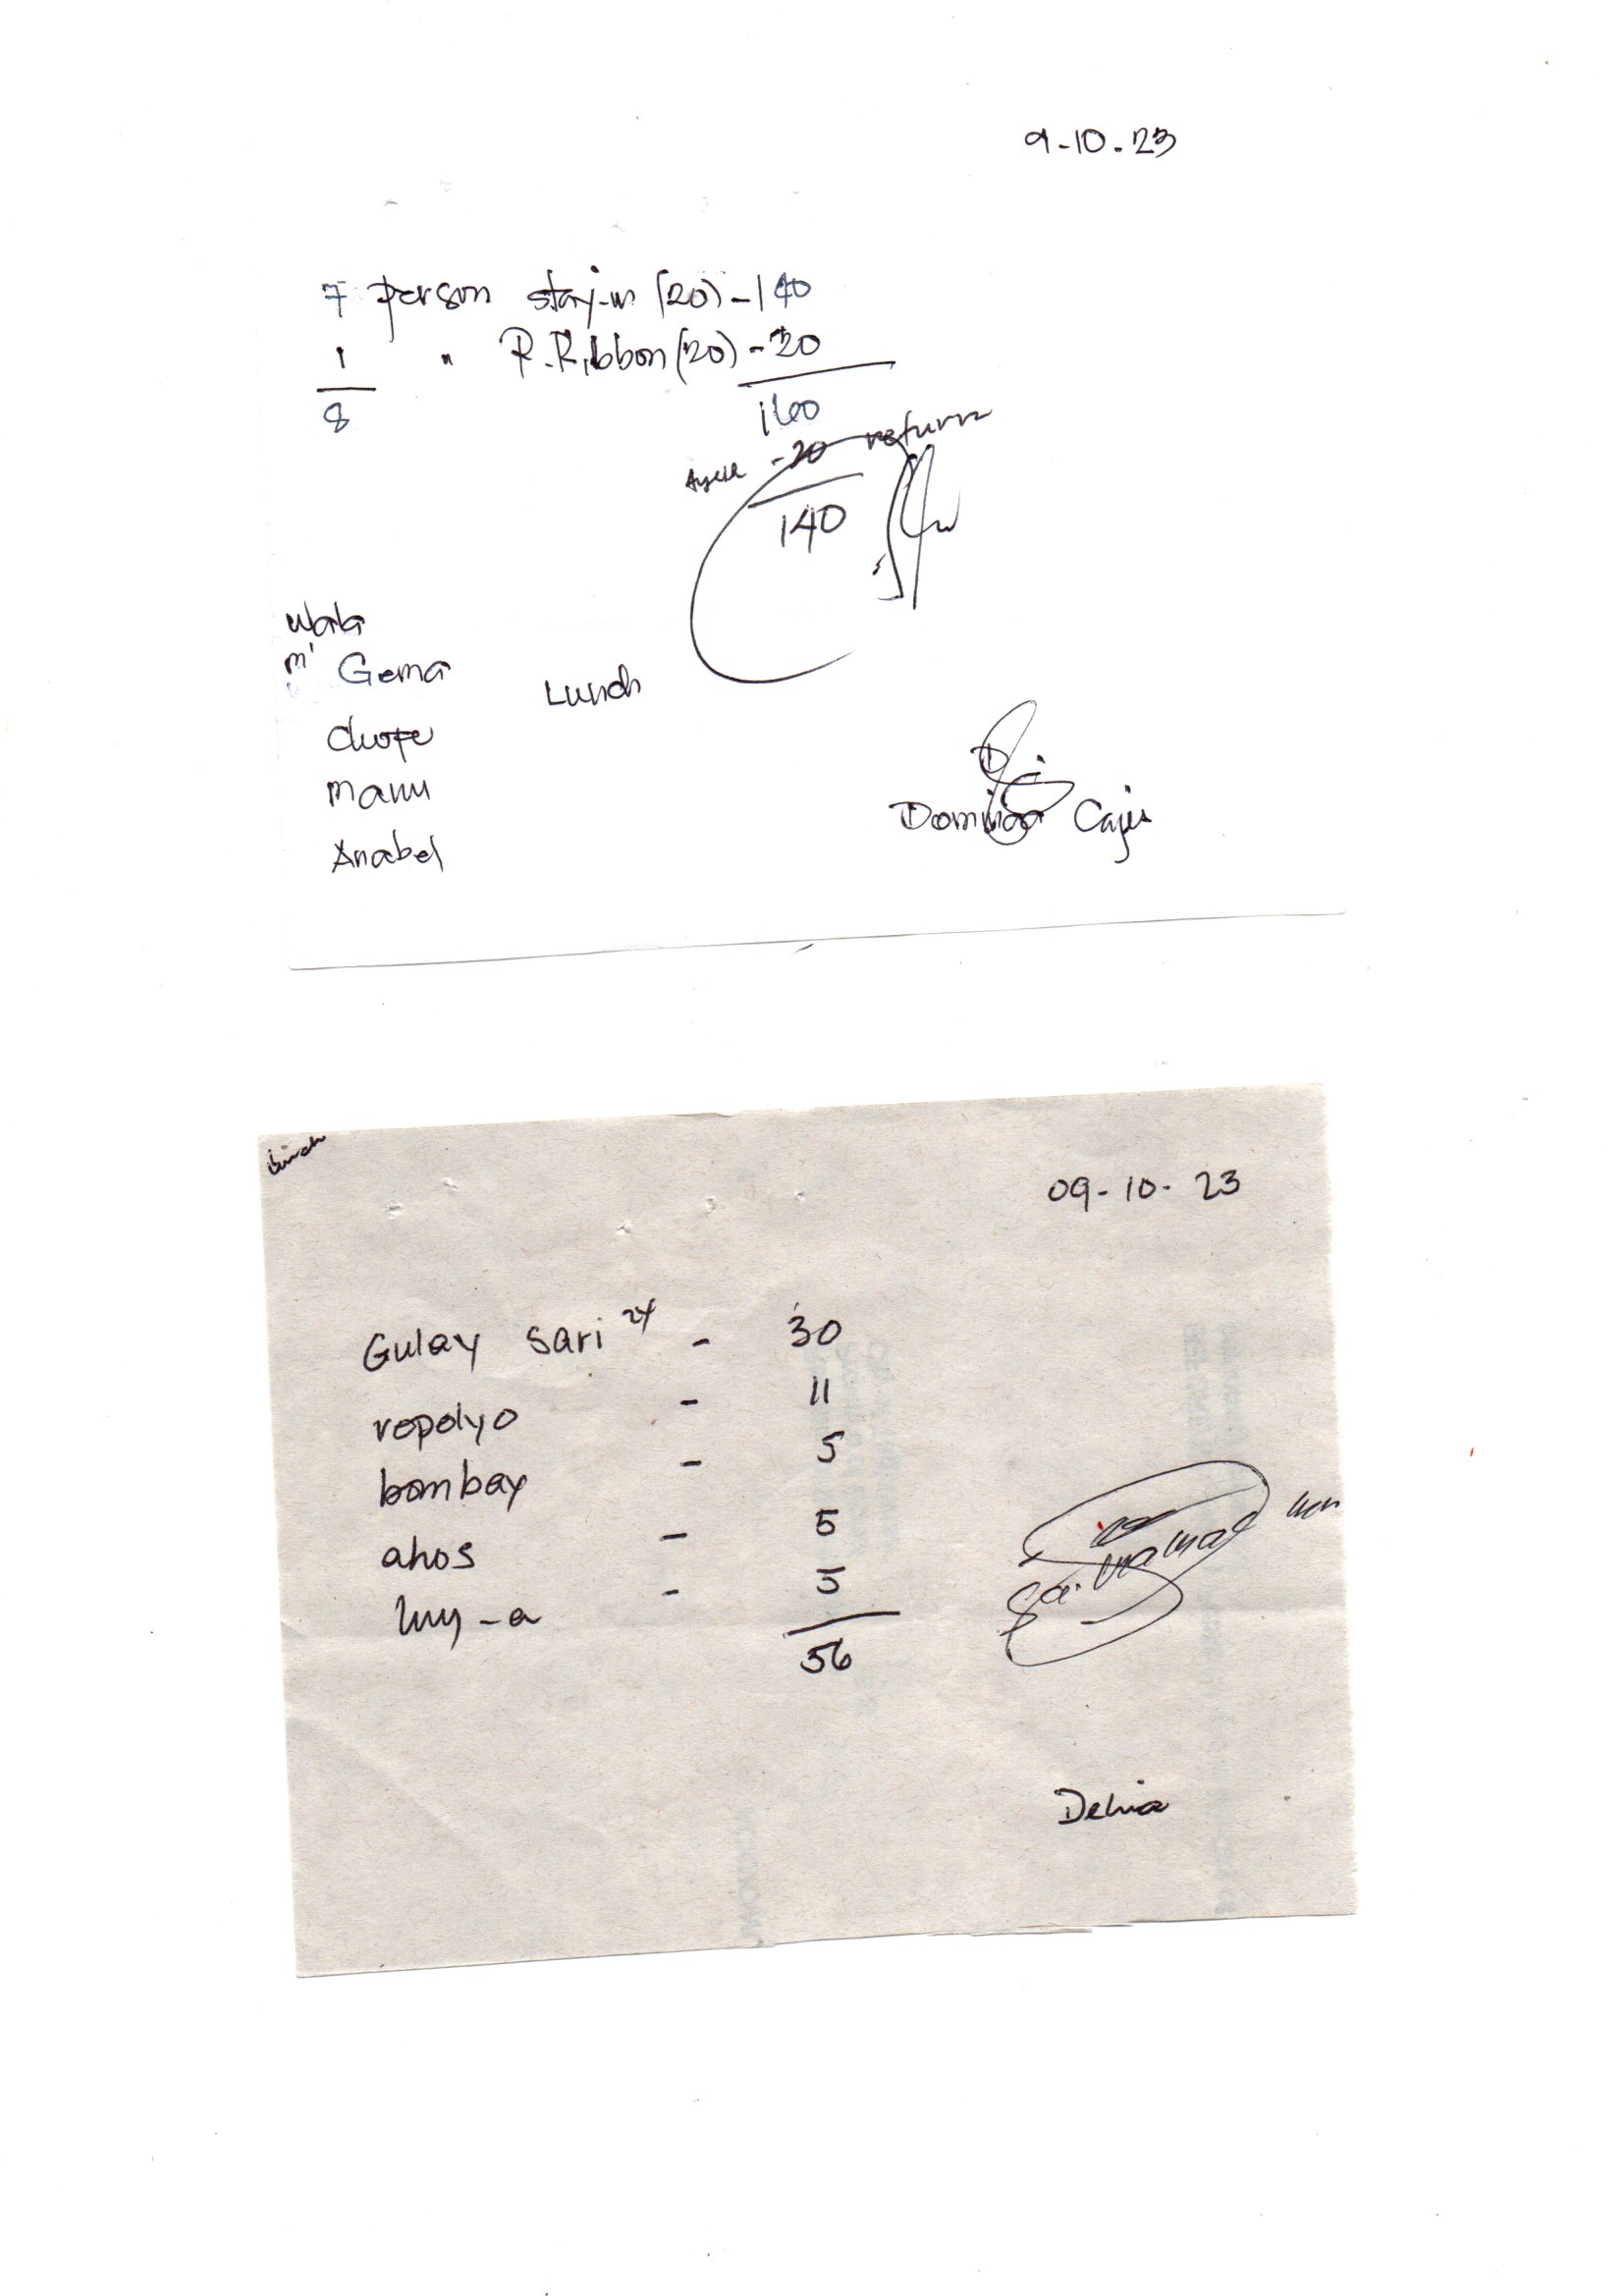 9-10-23
7 person stay-in (20) - 140
1 " R.Ribbon (20) - 20
8 160
-20 return
140
Wala
m' Gema
Lunch
Chope
Manu
Anabel
Domingo Cajis
Lunch
09-10-23
Gulay sari 2x - 30
repolyo - 11
bombay - 5
ahos - 5
luy-a - 5
56
Delia